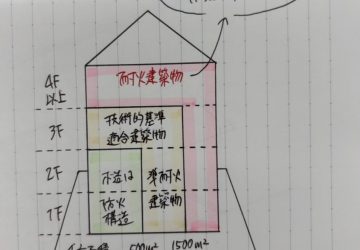 4F
以上
耐火建築物
3F
技術的基準
適合建築物
2F
準耐火
1F
防火
構造
建築物
500m² 1500m²